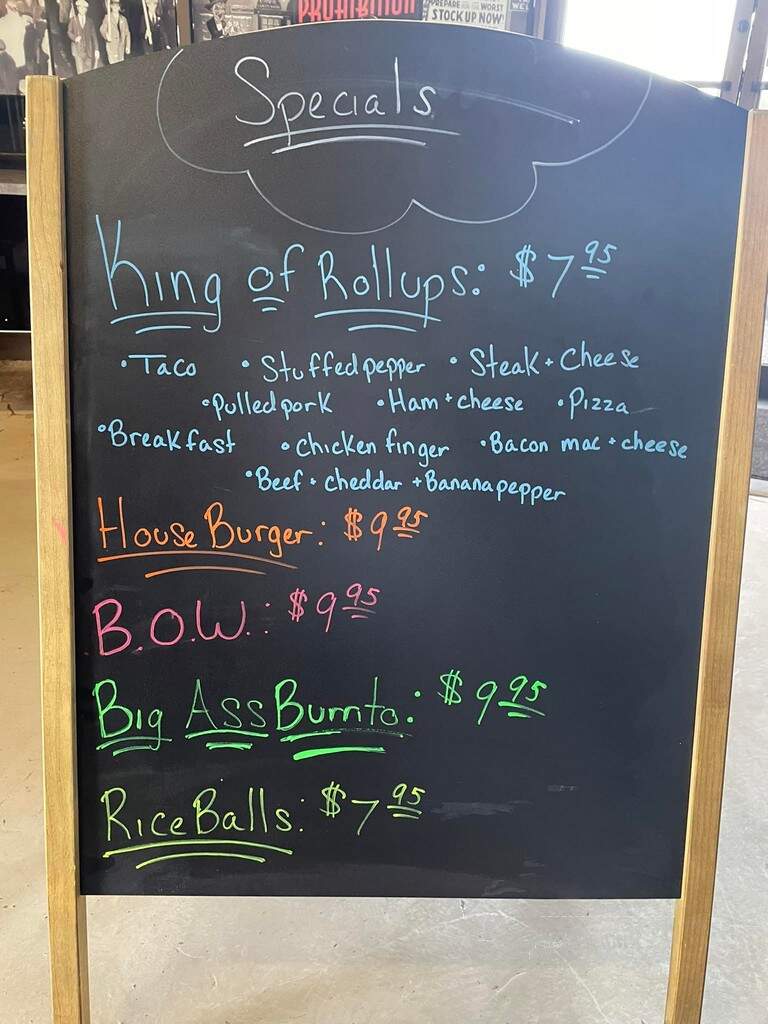 PROHIBITION
PREPARE THE WORST
STOCK UP NOW!
Specials
King of Rollups: $7.95
• Taco • Stuffed pepper • Steak + Cheese
• Pulled pork • Ham + cheese • Pizza
• Breakfast • Chicken finger • Bacon mac + cheese
• Beef + cheddar + Banana pepper
House Burger: $9.95
B.O.W.: $9.95
Big Ass Burrito: $9.95
Rice Balls: $7.95